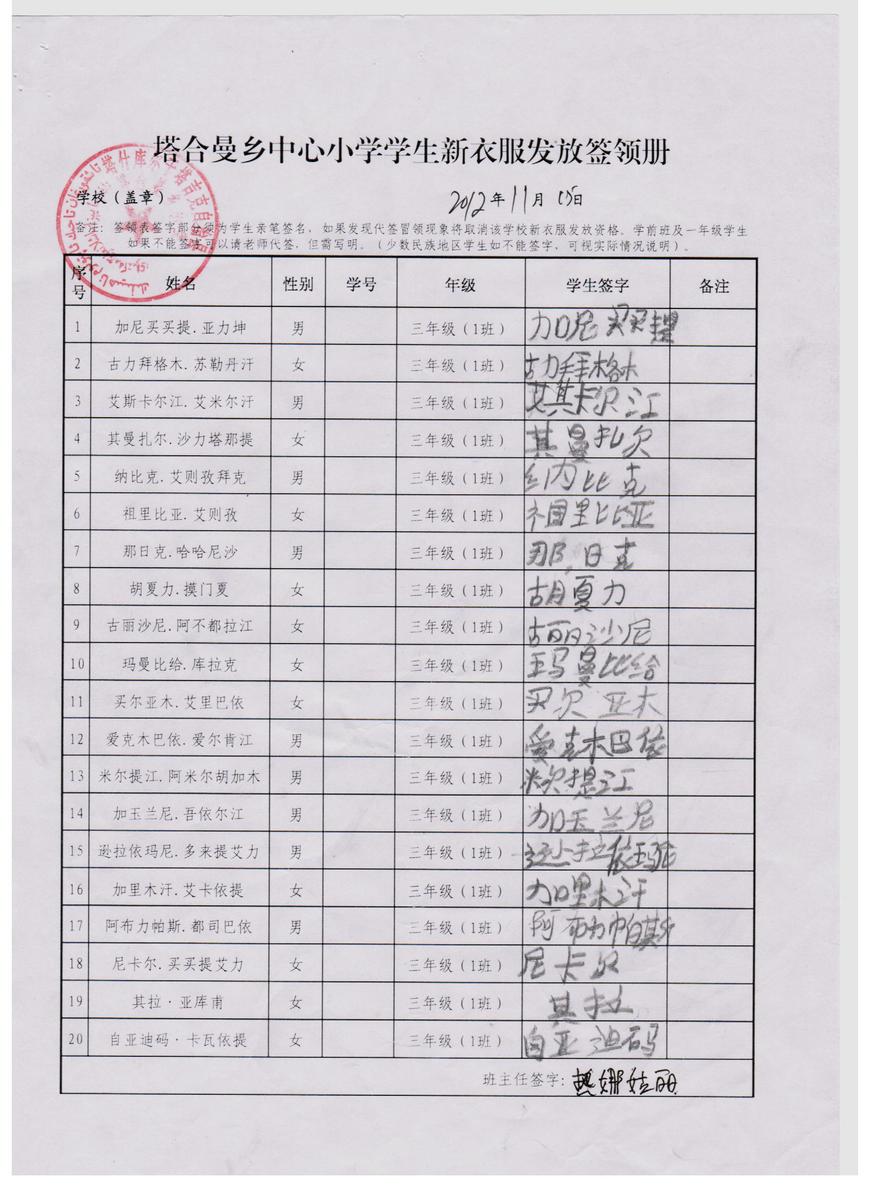 塔合曼乡中心小学学生新衣服发放签领册
学校（盖章） 2012年11月15日
备注：签领表签字部分须为学生亲笔签名，如果发现代签冒领现象将取消该学校新衣服发放资格。学前班及一年级学生
如果不能签字可以请老师代签，但需写明。（少数民族地区学生如不能签字，可视实际情况说明）。
序号 姓名 性别 学号 年级 学生签字 备注
1 加尼买买提.亚力坤 男 三年级（1班） 加尼买买提
2 古力拜格木.苏勒丹汗 女 三年级（1班） 古力拜格木
3 艾斯卡尔江.艾米尔汗 男 三年级（1班） 卡尔江
4 其曼扎尔.沙力塔那提 女 三年级（1班） 其曼扎尔
5 纳比克.艾则孜拜克 男 三年级（1班） 纳比克
6 祖里比亚.艾则孜 女 三年级（1班） 里比亚
7 那日克.哈哈尼沙 男 三年级（1班） 那,日克
8 胡夏力.摸门夏 女 三年级（1班） 胡夏力
9 古丽沙尼.阿不都拉江 女 三年级（1班） 古丽沙尼
10 玛曼比给.库拉克 女 三年级（1班） 玛曼比给
11 买尔亚木.艾里巴依 女 三年级（1班） 买尔亚木
12 爱克木巴依.爱尔肯江 男 三年级（1班） 爱克木巴依
13 米尔提江.阿米尔胡加木 男 三年级（1班） 米尔提江
14 加玉兰尼.吾依尔江 男 三年级（1班） 加玉兰尼
15 逊拉依玛尼.多来提艾力 男 三年级（1班） 逊拉依玛尼
16 加里木汗.艾卡依提 女 三年级（1班） 加里木汗
17 阿布力帕斯.都司巴依 男 三年级（1班） 阿布力帕斯
18 尼卡尔.买买提艾力 女 三年级（1班） 尼卡尔
19 其拉·亚库甫 女 三年级（1班） 其拉
20 自亚迪码·卡瓦依提 女 三年级（1班） 自亚迪码
班主任签字： 娜姑丽